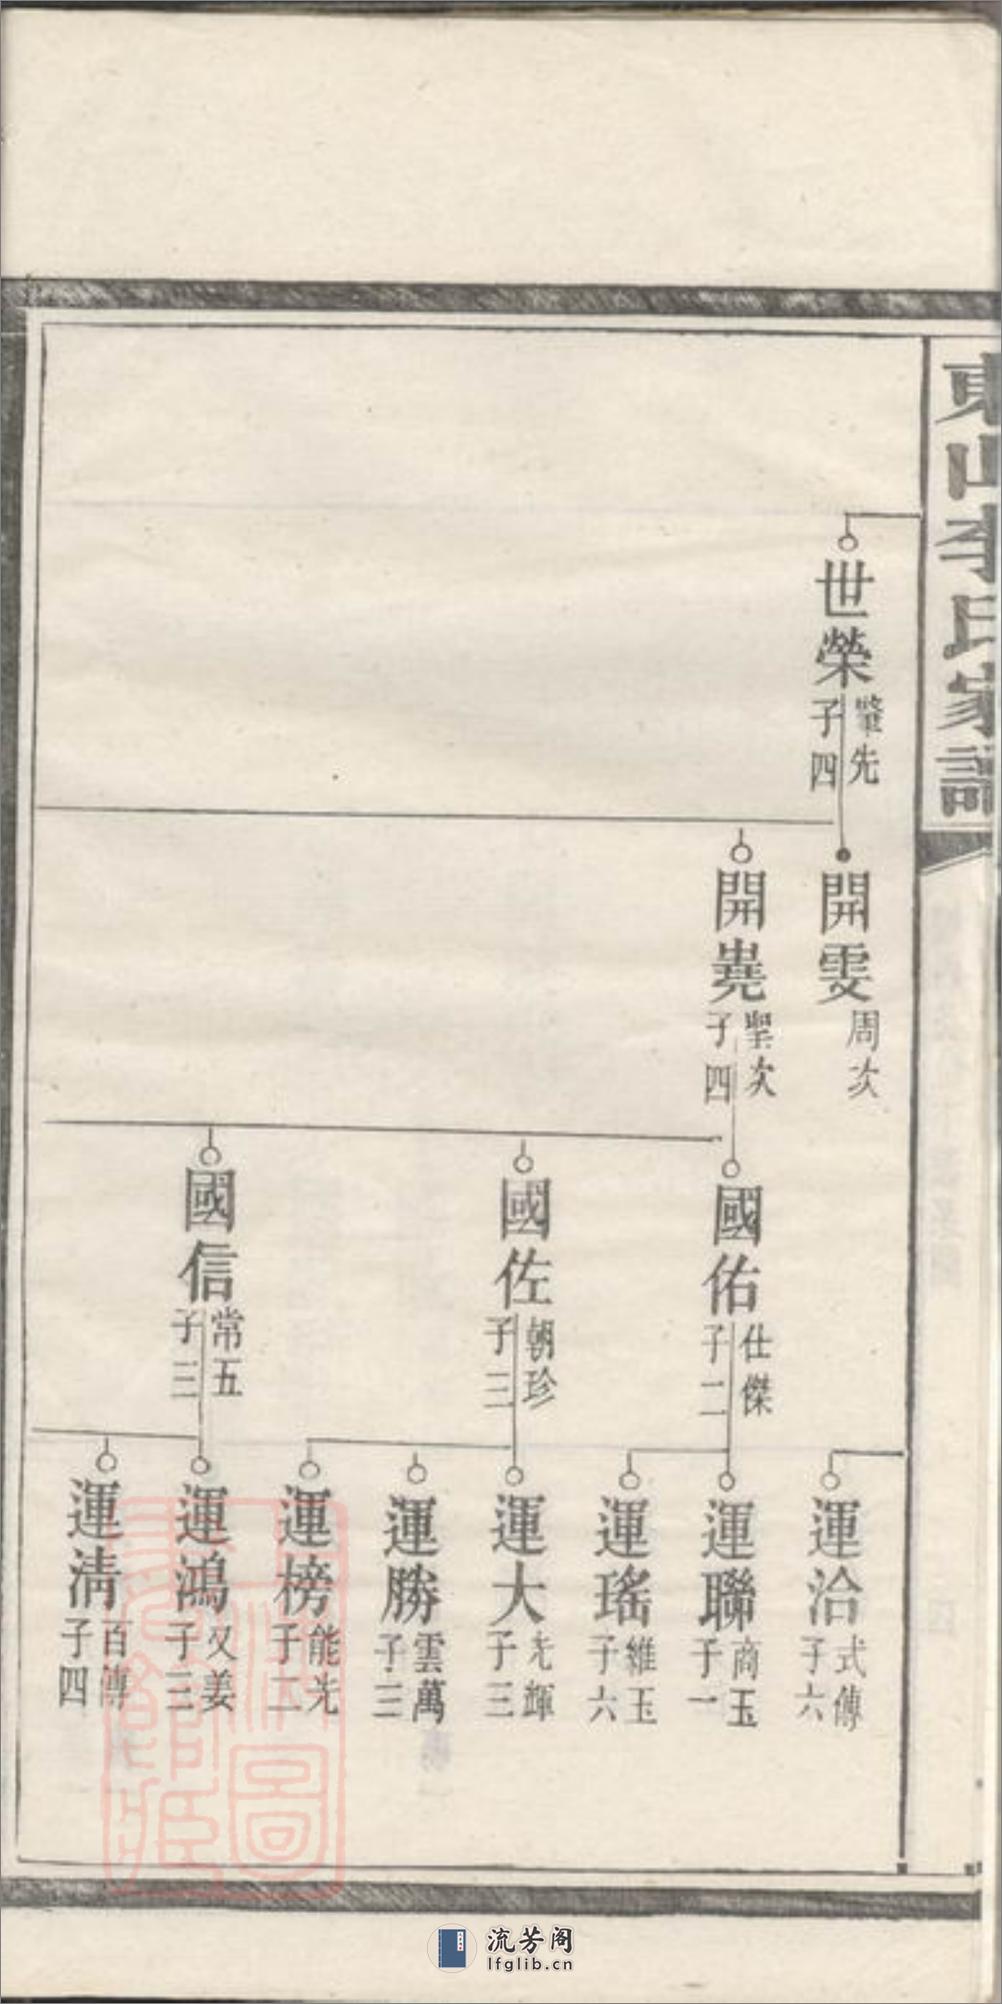 東山李氏家譜
世榮
肇先
子四
開雯
周次
開堯
聖次
子四
國佑
仕傑
子二
國佐
朝珍
子三
國信
常五
子三
運洽
式傳
子六
運聯
商玉
子一
運瑤
維玉
子六
運大
光輝
子三
運勝
雲萬
子三
運榜
能光
子二
運鴻
又姜
子三
運淸
百傳
子四
流芳阁
lfglib.cn